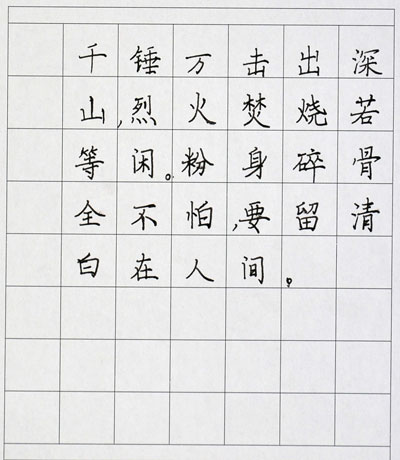 千锤万击出深
山,烈火焚烧若
等闲。粉身碎骨
全不怕,要留清
白在人间。